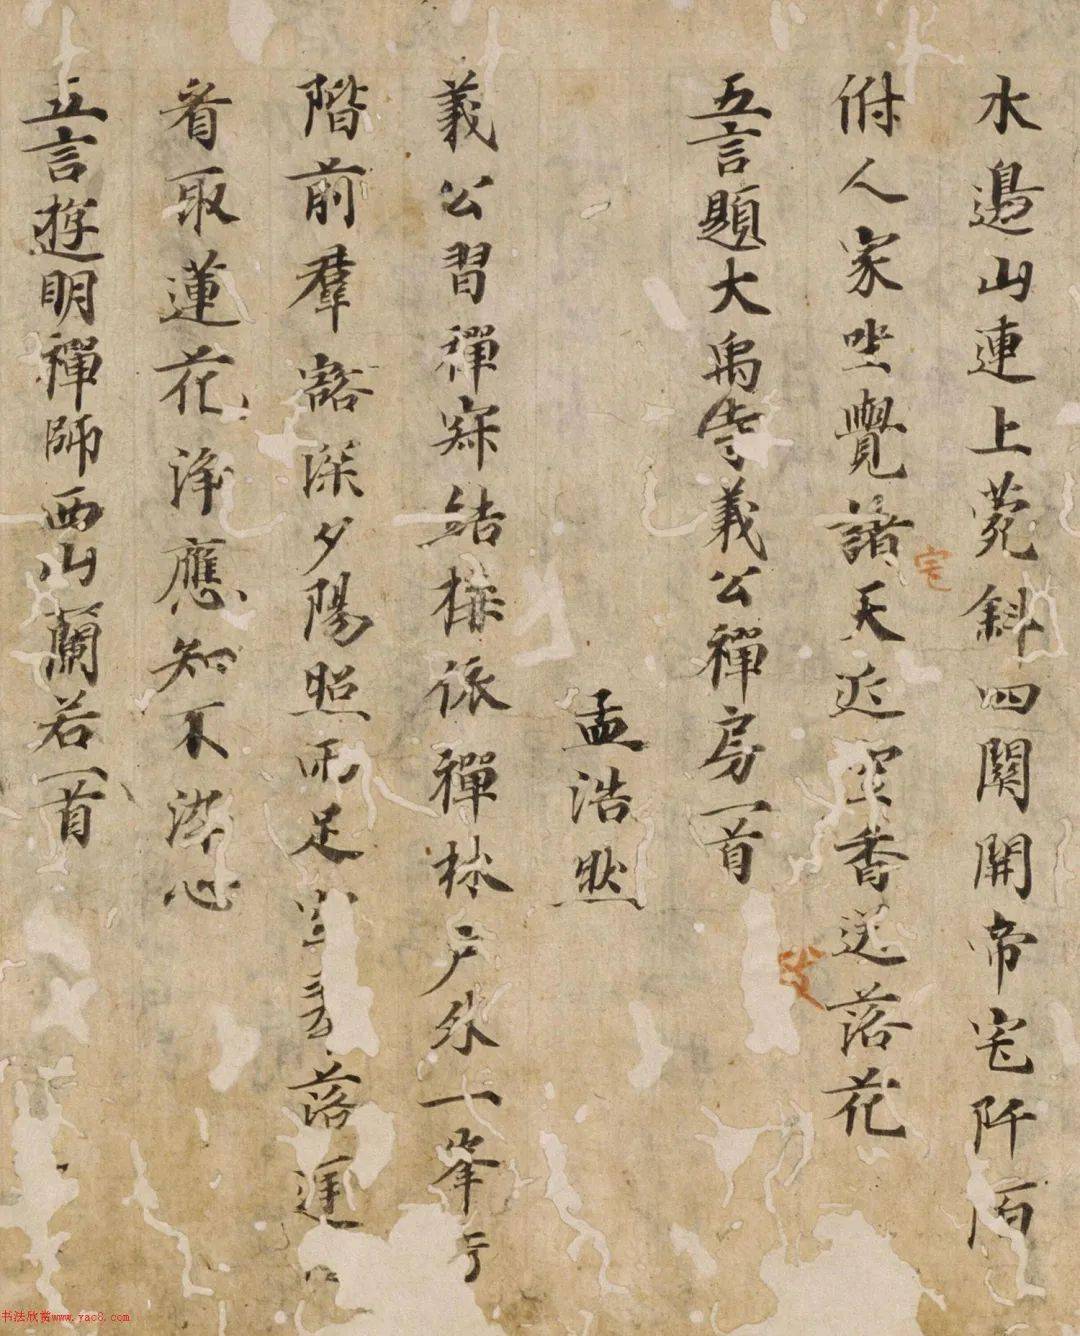 水邉山連上菀斜四關開帝宅阡陌
俯人家坐覺諸天近空香送落花
五言題大禹寺義公禪房一首
孟浩然
義公習禪寂結構依禪林戶外一峯
階前羣豁深夕陽照雨足空落迳
看取蓮花淨應知不染心
五言遊明禪師西山蘭若一首
宅
书法欣赏www.yac8.com